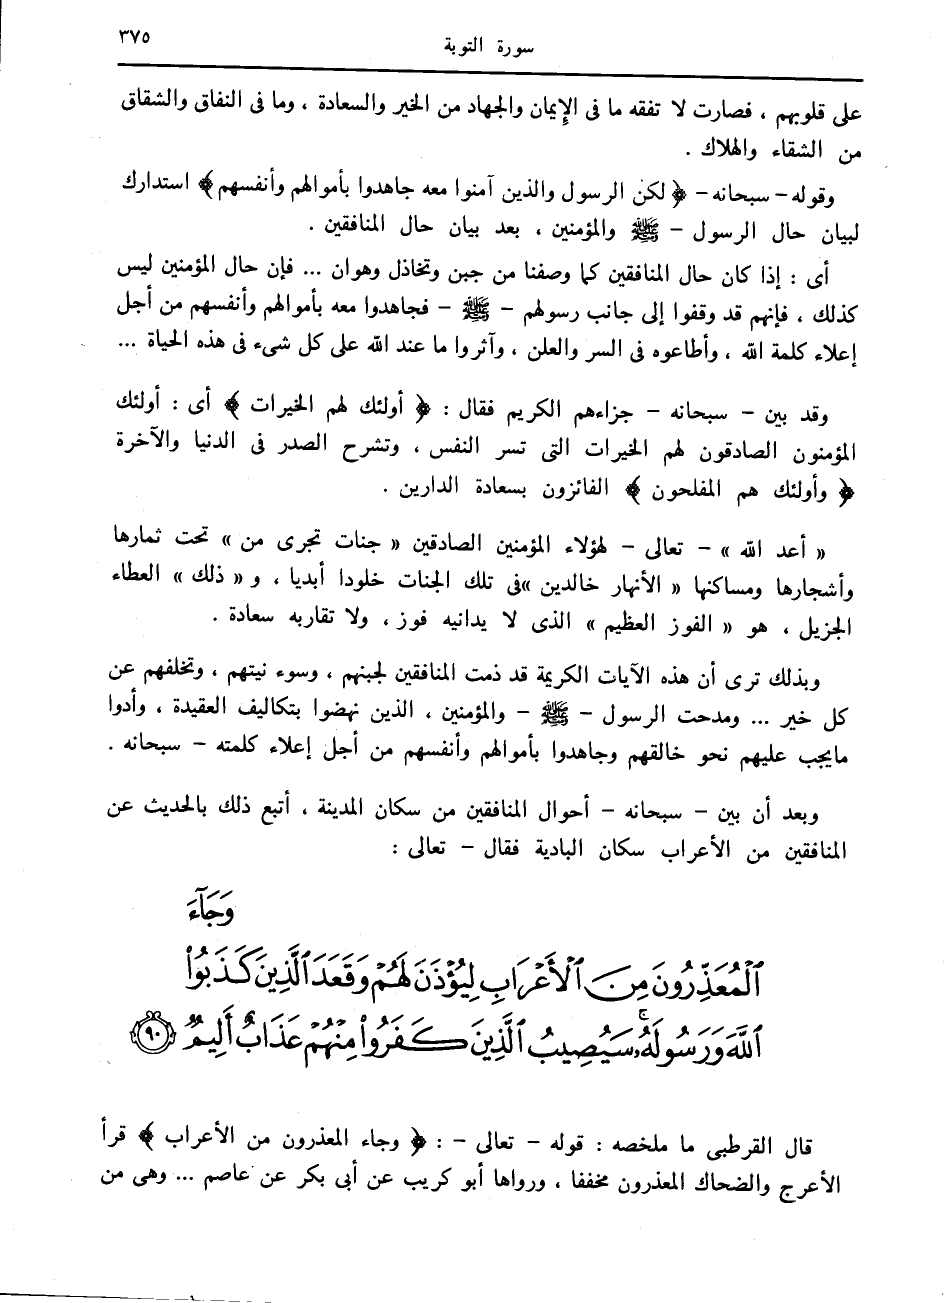 سورة التوبة
٣٧٥
على قلوبهم ، فصارت لا تفقه ما فى الإيمان والجهاد من الخير والسعادة ، وما فى النفاق والشقاق
من الشقاء والهلاك .
وقوله – سبحانه – ﴿ لكن الرسول والذين آمنوا معه جاهدوا بأموالهم وأنفسهم ﴾ استدارك
لبيان حال الرسول – ﷺ والمؤمنين ، بعد بيان حال المنافقين .
أى : إذا كان حال المنافقين كما وصفنا من جبن وتخاذل وهوان ... فإن حال المؤمنين ليس
كذلك ، فإنهم قد وقفوا إلى جانب رسولهم – ﷺ – فجاهدوا معه بأموالهم وأنفسهم من أجل
إعلاء كلمة الله ، وأطاعوه فى السر والعلن ، وآثروا ما عند الله على كل شىء فى هذه الحياة ...
وقد بين – سبحانه – جزاءهم الكريم فقال : ﴿ أولئك لهم الخيرات ﴾ أى : أولئك
المؤمنون الصادقون لهم الخيرات التى تسر النفس ، وتشرح الصدر فى الدنيا والآخرة
﴿ وأولئك هم المفلحون ﴾ الفائزون بسعادة الدارين .
« أعد الله » – تعالى – لهؤلاء المؤمنين الصادقين « جنات تجرى من » تحت ثمارها
وأشجارها ومساكنها « الأنهار خالدين »فى تلك الجنات خلودا أبديا ، و « ذلك » العطاء
الجزيل ، هو « الفوز العظيم » الذى لا يدانيه فوز ، ولا تقاربه سعادة .
وبذلك ترى أن هذه الآيات الكريمة قد ذمت المنافقين لجبنهم ، وسوء نيتهم ، وتخلفهم عن
كل خير ... ومدحت الرسول – ﷺ – والمؤمنين ، الذين نهضوا بتكاليف العقيدة ، وأدوا
مايجب عليهم نحو خالقهم وجاهدوا بأموالهم وأنفسهم من أجل إعلاء كلمته – سبحانه .
وبعد أن بين – سبحانه – أحوال المنافقين من سكان المدينة ، أتبع ذلك بالحديث عن
المنافقين من الأعراب سكان البادية فقال – تعالى :
وَجَآءَ
ٱلْمُعَذِّرُونَ مِنَ ٱلْأَعْرَابِ لِيُؤْذَنَ لَهُمْ وَقَعَدَ ٱلَّذِينَ كَذَبُوا۟
ٱللَّهَ وَرَسُولَهُۥ ۚ سَيُصِيبُ ٱلَّذِينَ كَفَرُوا۟ مِنْهُمْ عَذَابٌ أَلِيمٌ ﴿٩٠﴾
قال القرطبى ما ملخصه : قوله – تعالى – : ﴿ وجاء المعذرون من الأعراب ﴾ قرأ
الأعرج والضحاك المعذرون مخففا ، ورواها أبو كريب عن أبى بكر عن عاصم ... وهى من